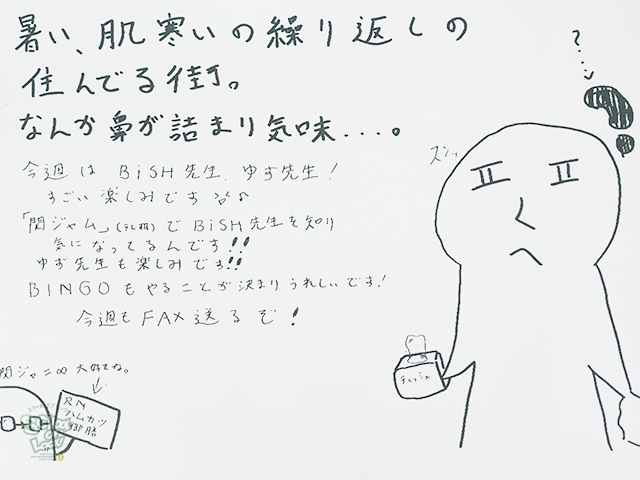 暑い、肌寒いの繰り返しの
住んでる街。
なんか鼻が詰まり気味...。
今週は BiSH先生、ゆず先生!
すごい楽しみです
「関ジャム」(テレ朝)で BiSH先生を知り
気になってるんです!!
ゆず先生も楽しみです!!
BINGOもやることが決まりうれしいです!
今週も FAX 送るぞ!
関ジャニ∞ 大好きな。
RN
ハムカツ
御膳
?
ズシッ
ティッシュ